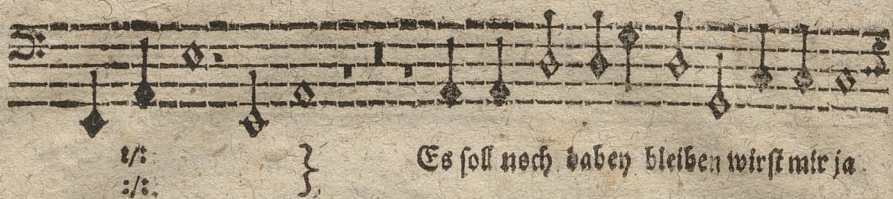 :/: Es soll noch dabey bleiben wirst mir ja
:/: